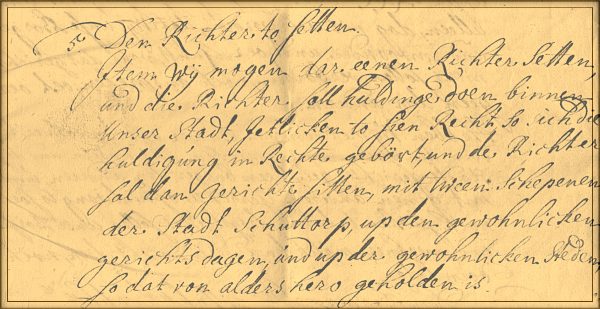 5 Den Richter to setten.
Item wij mogen dar eenen Richter setten,
und die Richter soll huldinge doen binnen
Unser Stadt, Jetlicken to sien Recht, so sich die
huldigúng in Rechte gebört, und de Richter
sal dan gerichte sitten, mit tween Schepenen
der Stadt Schuttorp, up den gewohnlicken
gerichts dagen, únd up der gewohnlicken Steden,
so dat von alders hero geholden is.